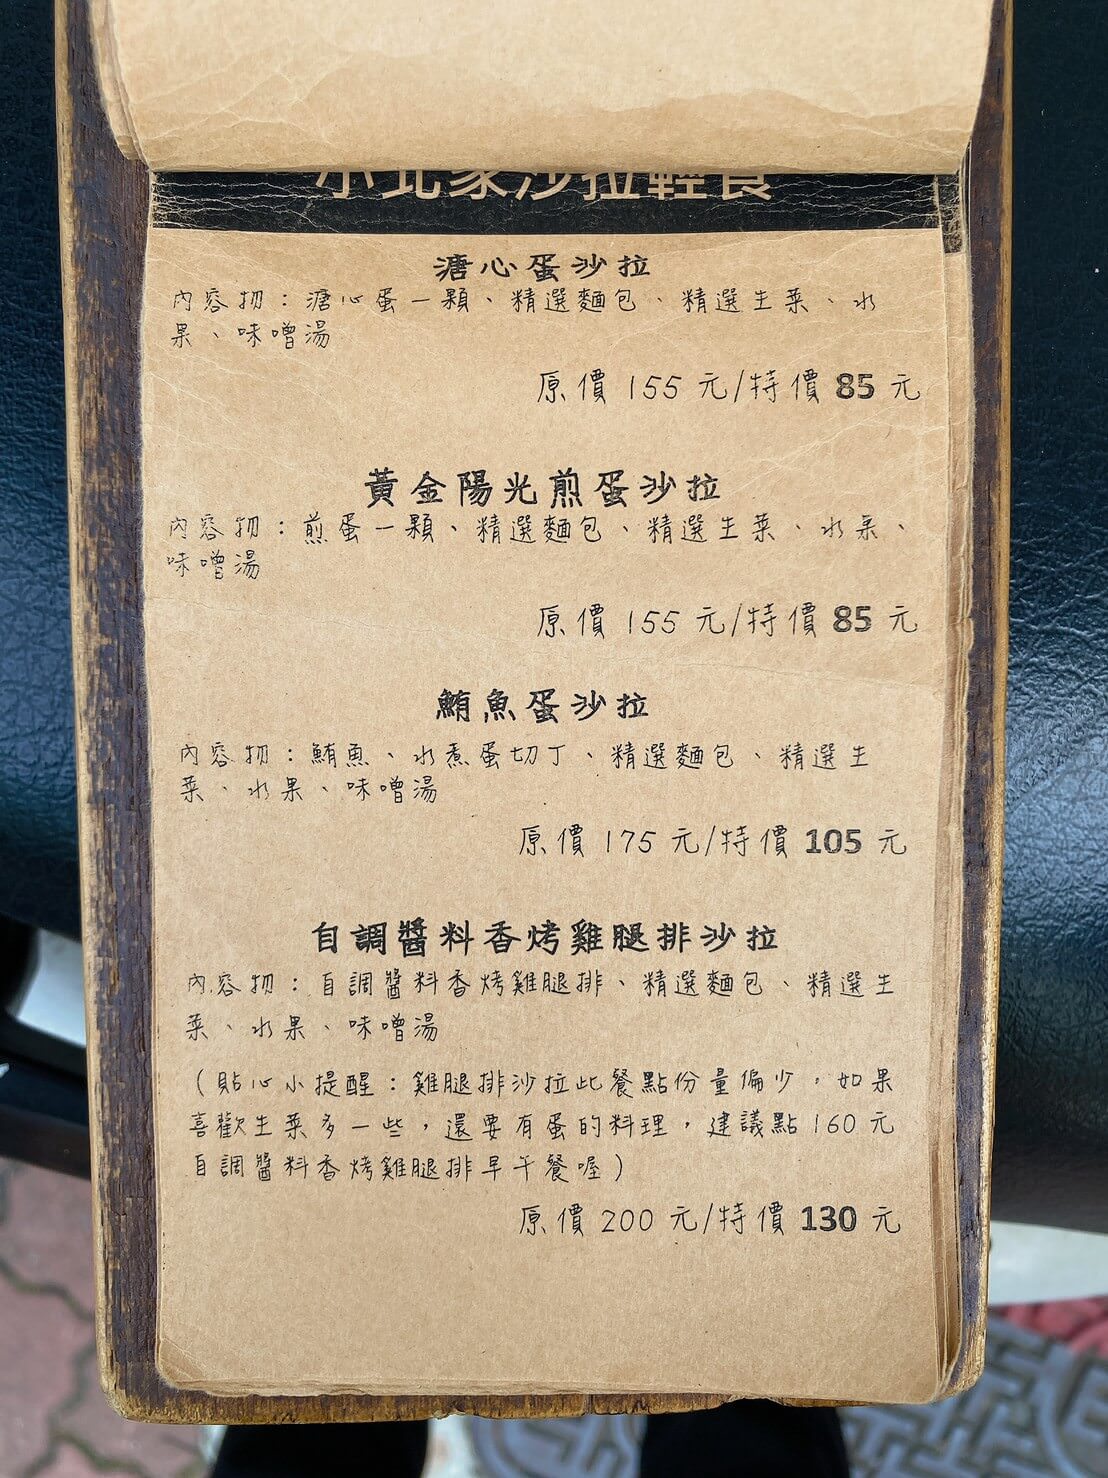 小北家沙拉輕食
溏心蛋沙拉
內容物：溏心蛋一顆、精選麵包、精選生菜、水
果、味噌湯
原價 155 元/特價 85 元
黃金陽光煎蛋沙拉
內容物：煎蛋一顆、精選麵包、精選生菜、水果、
味噌湯
原價 155 元/特價 85 元
鮪魚蛋沙拉
內容物：鮪魚、水煮蛋切丁、精選麵包、精選生
菜、水果、味噌湯
原價 175 元/特價 105 元
自調醬料香烤雞腿排沙拉
內容物：自調醬料香烤雞腿排、精選麵包、精選生
菜、水果、味噌湯
（貼心小提醒：雞腿排沙拉此餐點份量偏少，如果
喜歡生菜多一些，還要有蛋的料理，建議點 160 元
自調醬料香烤雞腿排早午餐喔）
原價 200 元/特價 130 元